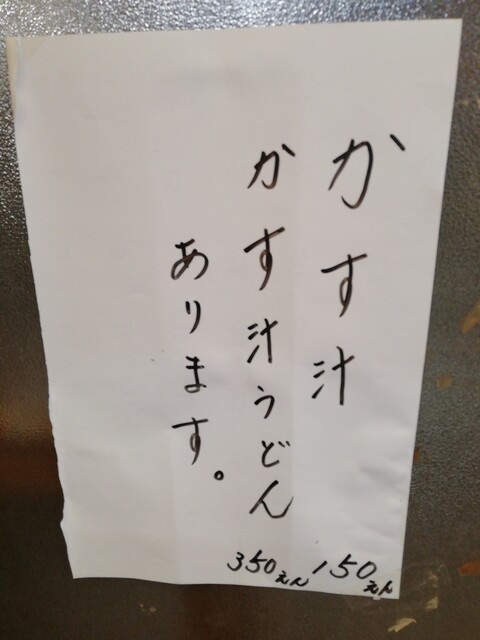 かす汁
150えん
かす汁うどん
350えん
あります。